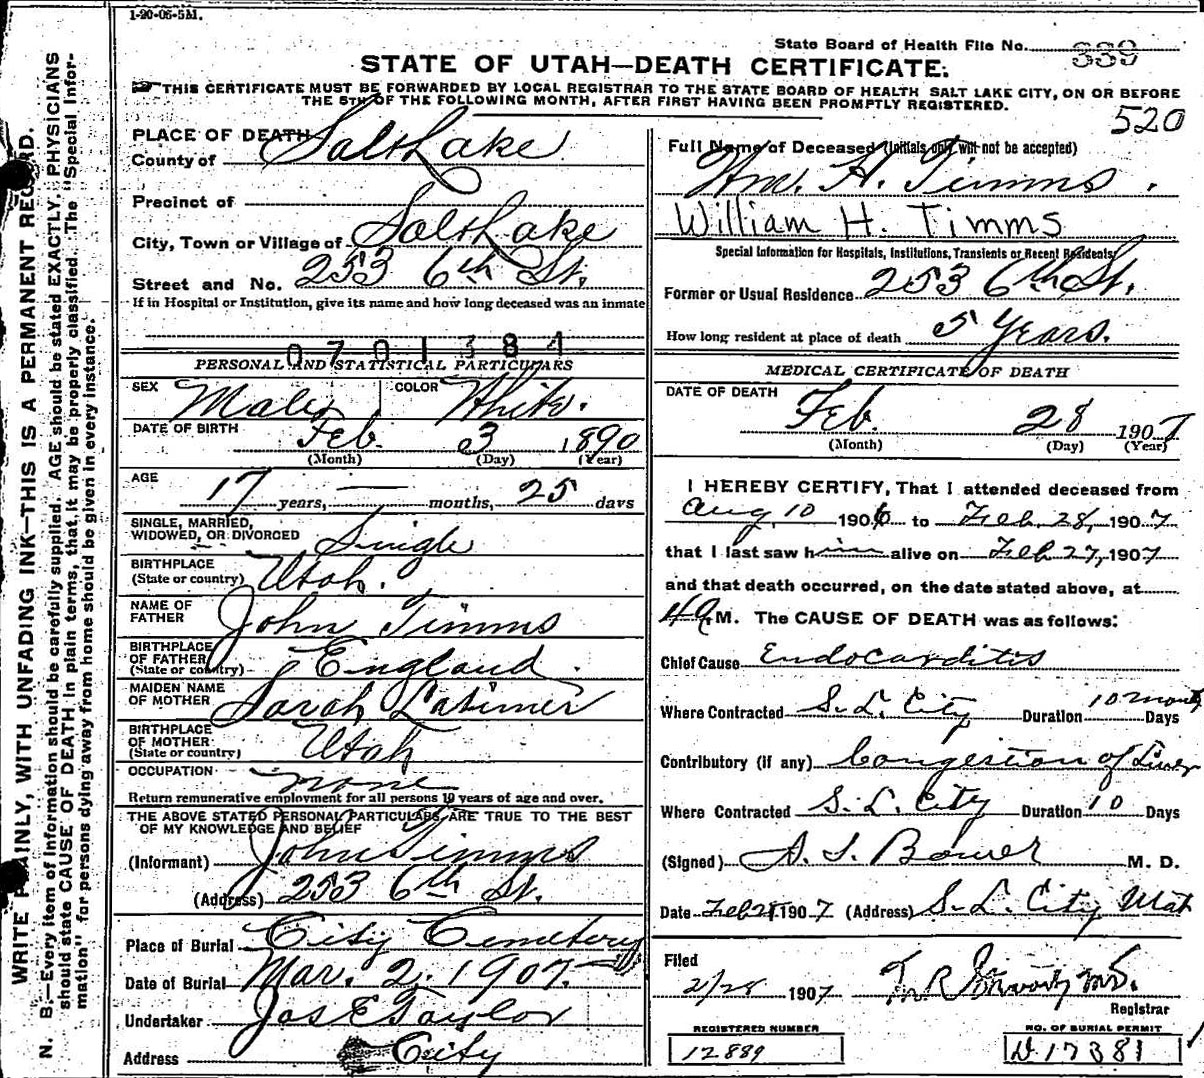 1-20-06-5M.
State Board of Health File No. 339
STATE OF UTAH—DEATH CERTIFICATE.
THIS CERTIFICATE MUST BE FORWARDED BY LOCAL REGISTRAR TO THE STATE BOARD OF HEALTH SALT LAKE CITY, ON OR BEFORE
THE 5TH OF THE FOLLOWING MONTH, AFTER FIRST HAVING BEEN PROMPTLY REGISTERED.
520
WRITE PLAINLY, WITH UNFADING INK—THIS IS A PERMANENT RECORD.
N. B.—Every item of information should be carefully supplied. AGE should be stated EXACTLY. PHYSICIANS
should state CAUSE OF DEATH in plain terms, that it may be properly classified. The "Special Infor-
mation" for persons dying away from home should be given in every instance.
PLACE OF DEATH
County of Salt Lake
Precinct of
City, Town or Village of Salt Lake
Street and No. 253 6th St.
If in Hospital or Institution, give its name and how long deceased was an inmate
0701384
PERSONAL AND STATISTICAL PARTICULARS
SEX Male COLOR White.
DATE OF BIRTH Feb. 3 1890
(Month) (Day) (Year)
AGE
17 years, — months, 25 days
SINGLE, MARRIED,
WIDOWED, OR DIVORCED Single
BIRTHPLACE
(State or country) Utah.
NAME OF
FATHER John Timms
BIRTHPLACE
OF FATHER
(State or country) England.
MAIDEN NAME
OF MOTHER Sarah Latimer
BIRTHPLACE
OF MOTHER
(State or country) Utah
OCCUPATION none
Return remunerative employment for all persons 10 years of age and over.
THE ABOVE STATED PERSONAL PARTICULARS ARE TRUE TO THE BEST
OF MY KNOWLEDGE AND BELIEF
(Informant) John Timms
(Address) 253 6th St.
Place of Burial City Cemetery
Date of Burial Mar. 2. 1907.
Undertaker Jos E Taylor
Address City
Full Name of Deceased (Initials only will not be accepted)
Wm. H. Timms.
William H. Timms
Special Information for Hospitals, Institutions, Transients or Recent Residents
Former or Usual Residence 253 6th St.
How long resident at place of death 5 Years.
MEDICAL CERTIFICATE OF DEATH
DATE OF DEATH
Feb. 28 1907
(Month) (Day) (Year)
I HEREBY CERTIFY, That I attended deceased from
Aug 10 1906 to Feb. 28, 1907
that I last saw him alive on Feb 27, 1907
and that death occurred, on the date stated above, at
M. The CAUSE OF DEATH was as follows:
Chief Cause Endocarditis
Where Contracted S. L. City Duration 10 month Days
Contributory (if any) Congestion of Liver
Where Contracted S. L. City Duration 10 Days
(Signed) A. S. Bower M. D.
Date Feb 28, 1907 (Address) S. L. City Utah
Filed
2/28 1907
Registrar
REGISTERED NUMBER
12889
NO. OF BURIAL PERMIT
D 17381